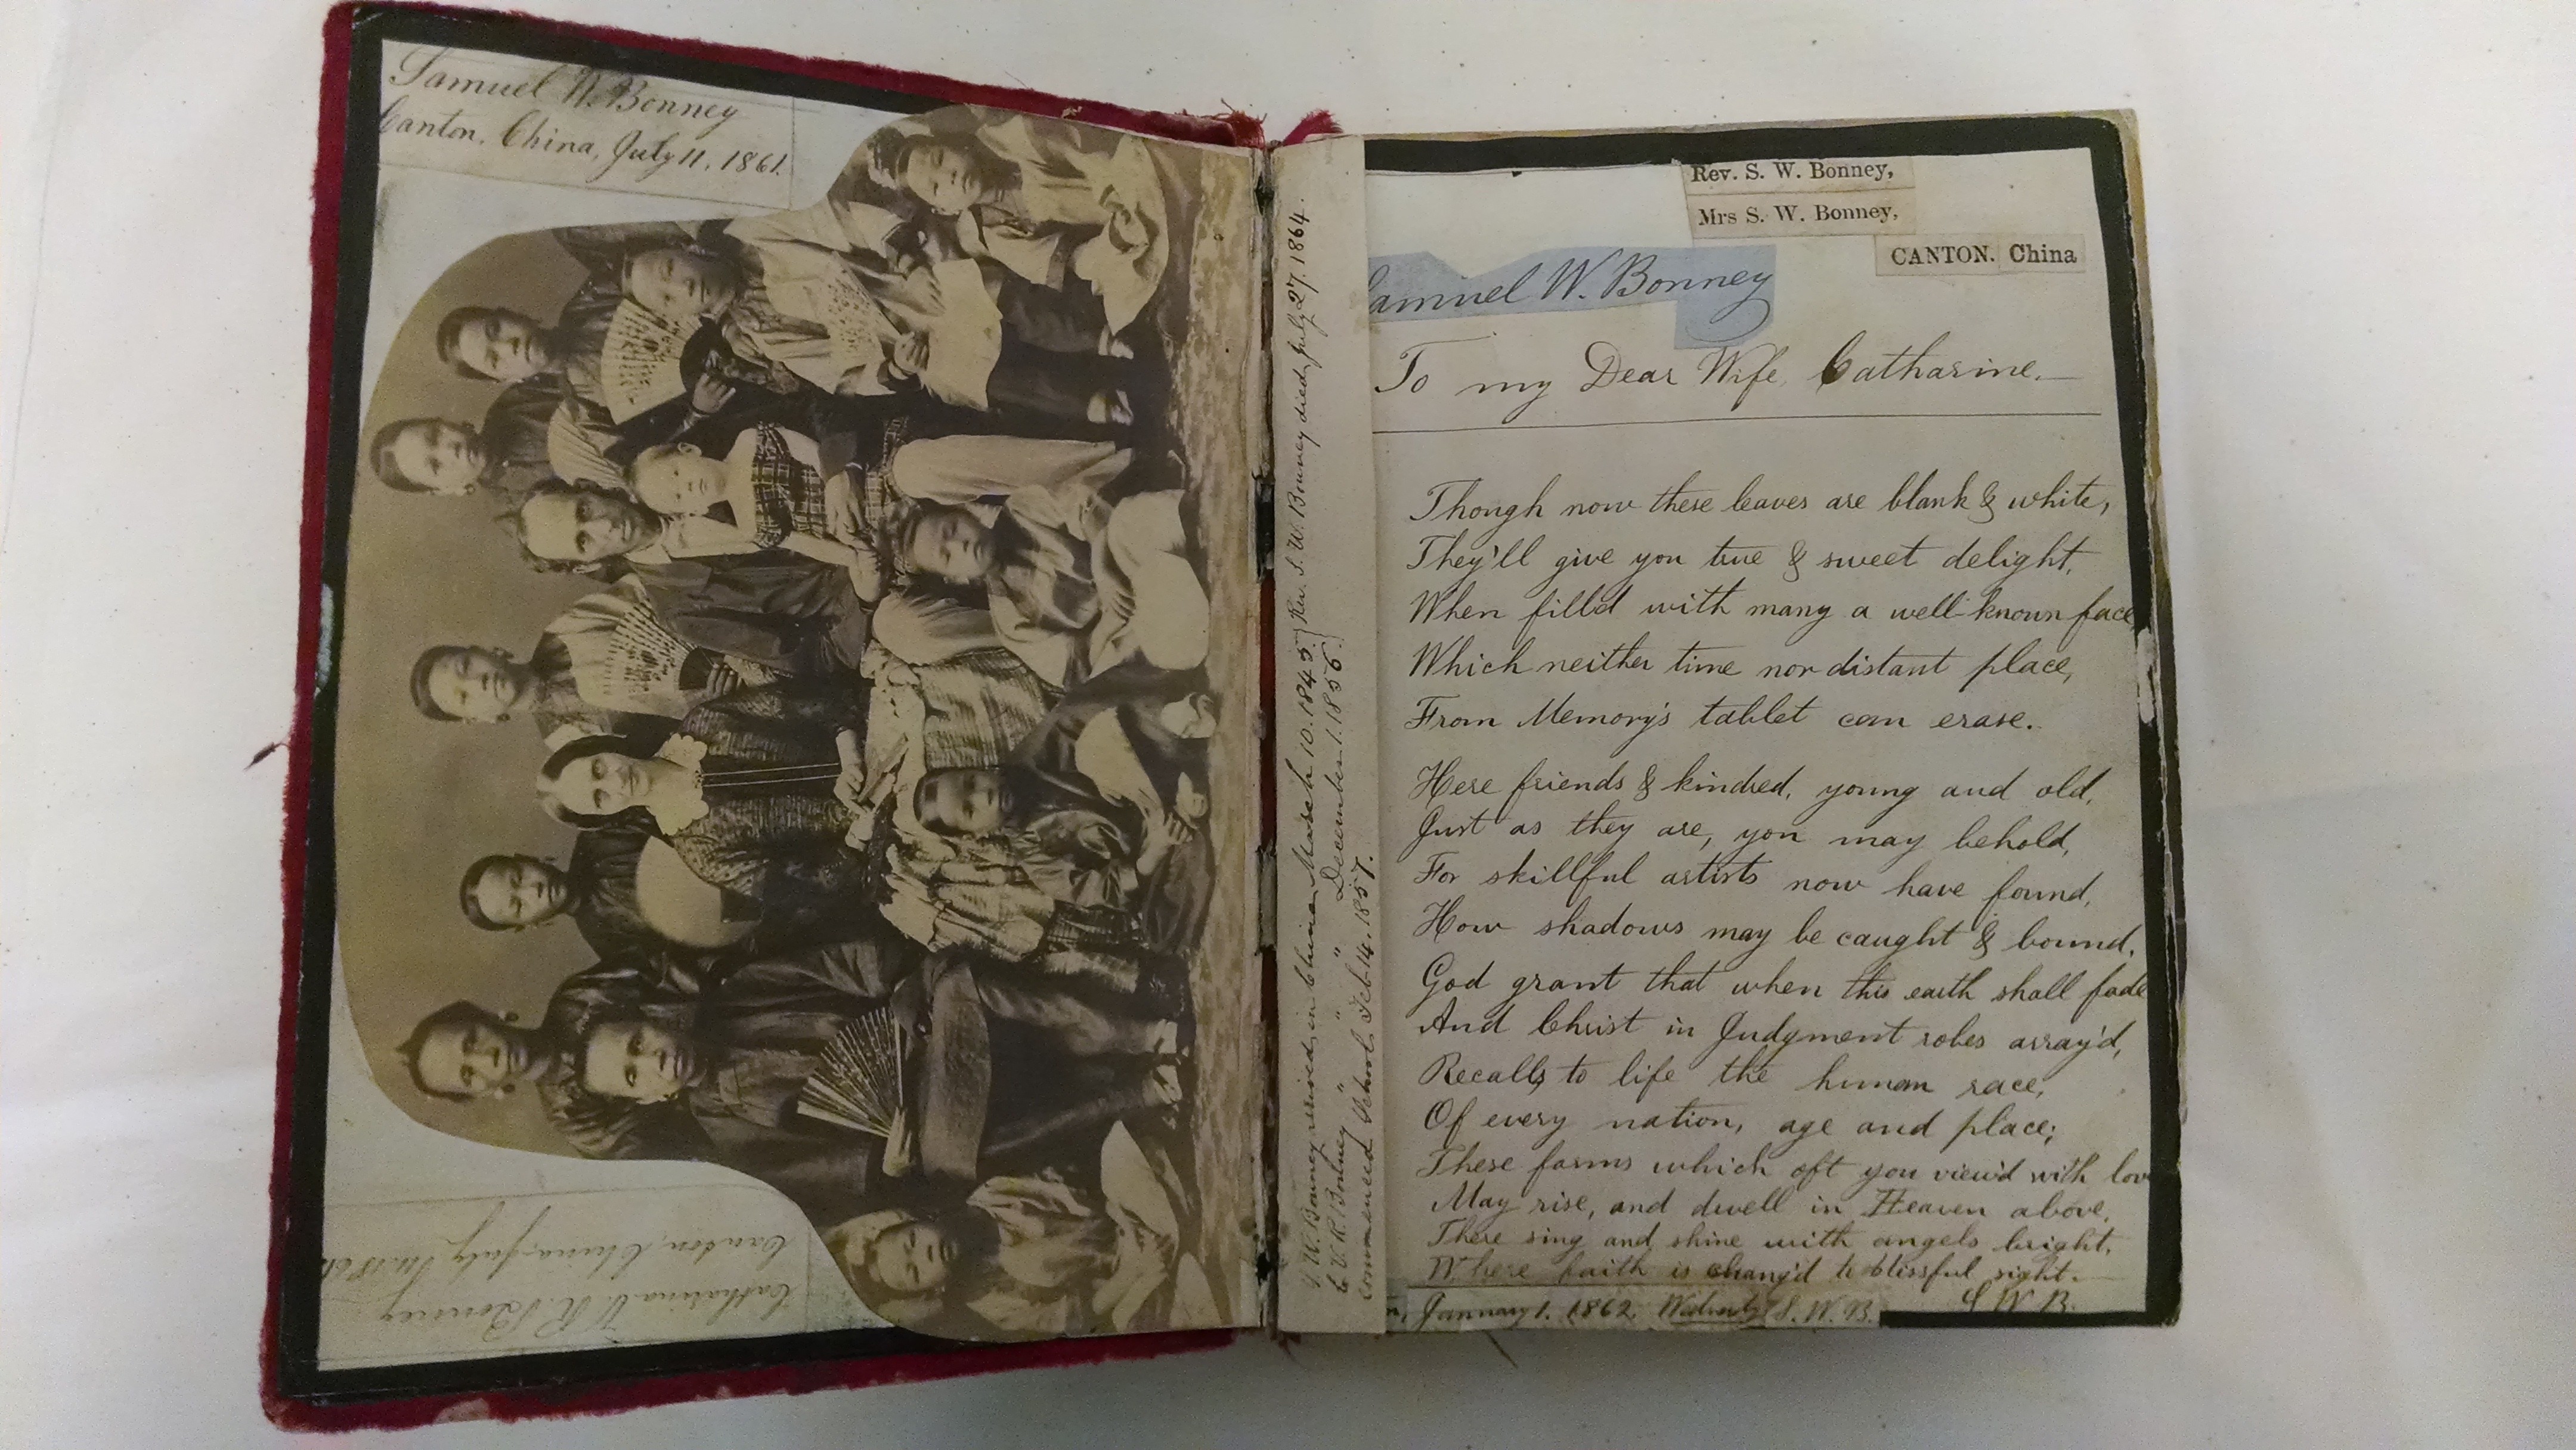 Samuel W. Bonney
Canton, China, July 11, 1861.
Catharina V. R. Bonney
Canton, China, July 11, 1861
S. W. Bonney arrived in China March 10. 1845. } Rev. S. W. Bonney died July 27. 1864.
C. V. R. Bonney " " " December 1. 1856. }
Commenced School Feb. 14. 1857.
Rev. S. W. Bonney,
Mrs S. W. Bonney,
CANTON. China
Samuel W. Bonney
To my Dear Wife, Catharine.—
Though now these leaves are blank & white,
They'll give you true & sweet delight,
When fill'd with many a well-known face,
Which neither time nor distant place,
From Memory's tablet can erase.
Here friends & kindred, young and old,
Just as they are, you may behold,
For skillful artists now have found,
How shadows may be caught & bound,
God grant that when this earth shall fade
And Christ in Judgment robes array'd,
Recalls to life the human race,
Of every nation, age and place;
These forms which oft you view'd with love
May rise, and dwell in Heaven above,
There sing and shine with angels bright,
Where faith is chang'd to blissful sight.—
S. W. B.
January 1. 1862. S. W. B.